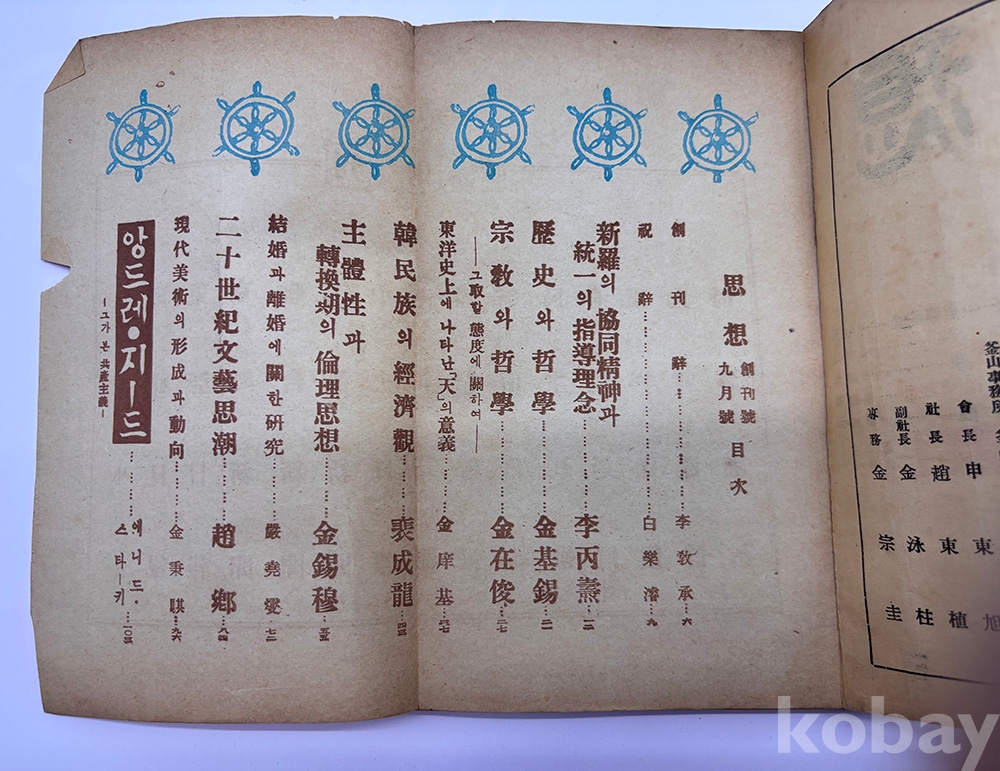 思想 創刊號 九月號 目次
創刊辭 李敎承 六
祝辭 白樂濬 九
新羅의 協同精神과
統一의 指導理念 李丙燾 一二
歷史와 哲學 金基錫 二一
宗敎와 哲學 金在俊 二七
──그取할 態度에 關하여──
東洋史上에 나타난「天」의 意義 金庠基
韓民族의 經濟觀 裵成龍 四五
主體性과
轉換期의 倫理思想 金錫穆 五五
結婚과 離婚에 關한 硏究 嚴堯燮 七二
二十世紀文藝思潮 趙鄕 八四
現代美術의 形成과 動向 金秉騏 九六
앙드레・지ー드 에니드・스타ー키 一〇五
ー그가 본 共產主義ー
釜山事務所
會長 申東旭
社長 趙東植
副社長 金泳柱
專務 金宗圭
kobay